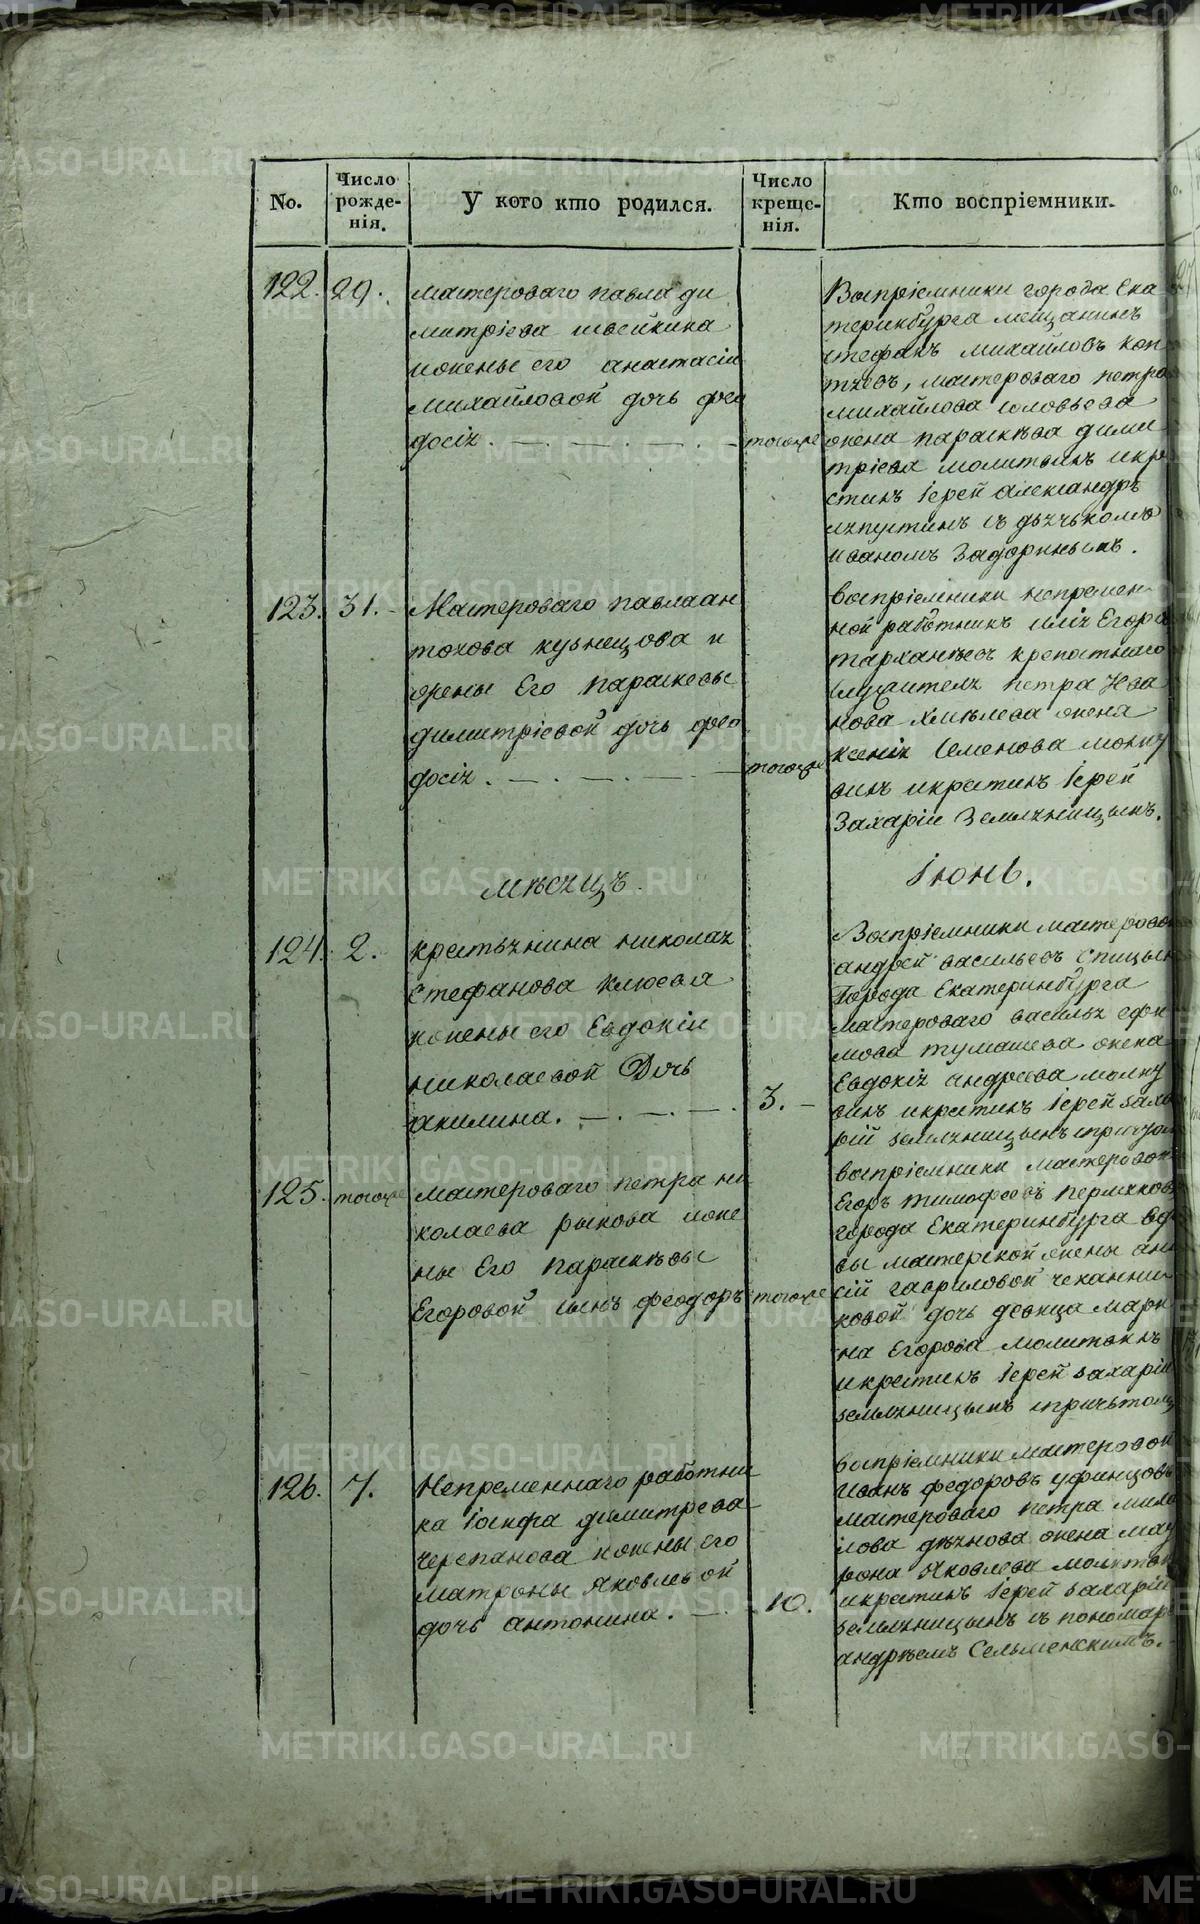 No.
Число рожде-нія.
У кого кто родился.
Число креще-нія.
Кто воспріемники.
122. 29.
мастероваго павла ди
митріева швейкина
ижены его анастасіи
михайловой дочь фео
досія.
тогоже
Воспріемники города Ека
теринбурга мещанинъ
стефанъ михайловъ коп
тяевъ, мастероваго петра
михайлова соловьева
жена параскѣва дими
тріева молитвилъ икре
стилъ іерей александръ
ляпустинъ съ дьячькомъ
иваномъ Задоринымъ.
123. 31.
Мастероваго павла ан
тонова кузнецова и
жены Его параскевы
димитріевой дочь фео
досія.
тогоже
воспріемники непремен
ной работникъ илія Егора
тарханѣевъ крепостнаго
служителя петра Ива
нова хмѣлева жена
ксенія Семенова молит
вилъ икрестилъ Іерей
Захаріи Земляницынъ.
мѣсяцъ
Іюнь.
124. 2.
крестьянина николая
Стефанова клюева
ижены его Евдокіи
николаевой Дочь
акилина.
3.
Воспріемники мастеровой
андрей васильевъ спицын
города Екатеринбурга
мастероваго василья ефи
мова тумашева жена
Евдокія андреева молит
вилъ икрестилъ Іерей заха
рій земляницынъ спричтом
125. тогоже
мастероваго петра ни
колаева рыкова иже
ны Его параскѣвы
Егоровой сынъ феодоръ
тогоже
воспріемники мастеровой
Егоръ тимофеевъ пермяковъ
города Екатеринбурга вдо
вы мастерской жены ани
сіи гавриловой чеканни
ковой дочь девица мари
на Егорова молитвилъ
икрестилъ Іерей захарій
земляницынъ спричьтомъ
126. 7.
Непременнаго работни
ка Іосифа димитрева
черепанова ижены его
матроны яковлевой
дочь антонина.
10.
воспріемники мастеровой
Иванъ федоровъ уфинцовъ
мастероваго петра миха
лова жена мат
рона яковлева молитвил
икрестилъ Іерей захарій
землянцынъ съ пономаре
андрѣемъ Сельменскимъ.
METRIKI.GASO-URAL.RU